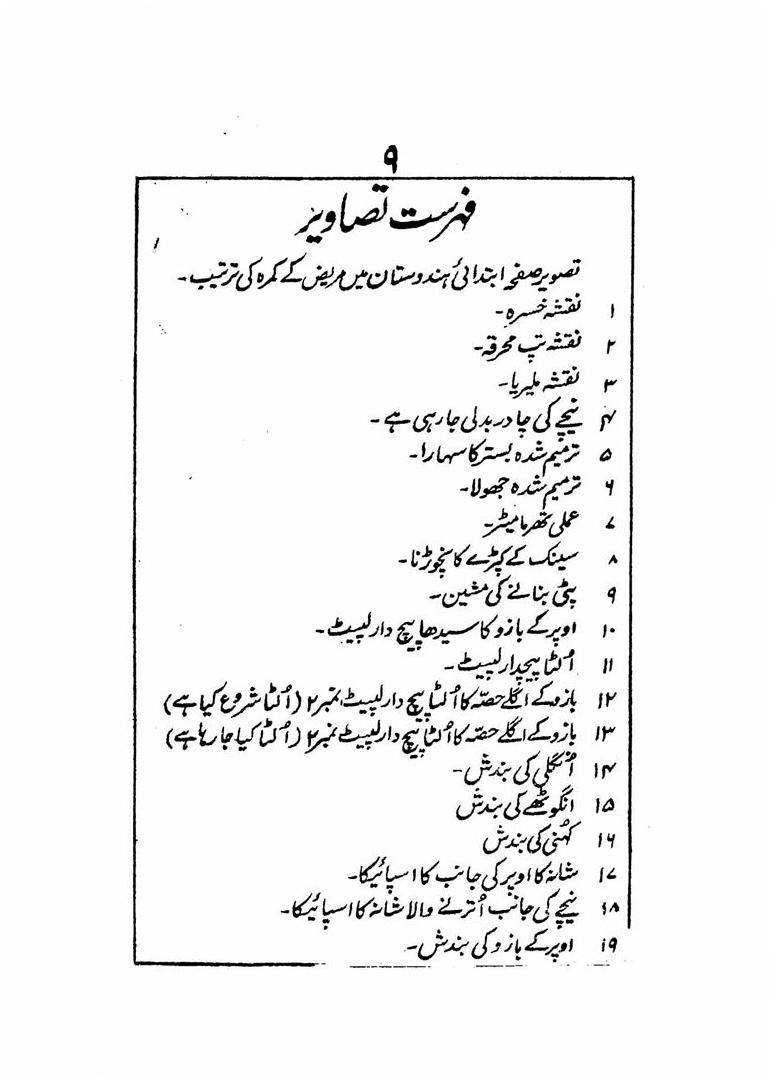 ۹
فہرست تصاویر
تصویر صفحہ ابتدائی ہندوستان میں مریض کے کمرہ کی ترتیب۔
۱ نقشہ خسرہ۔
۲ نقشہ تپ محرقہ۔
۳ نقشہ ملیریا۔
۴ نیچے کی چادر بدلی جا رہی ہے۔
۵ ترمیم شدہ بستر کا سہارا۔
۶ ترمیم شدہ جھولا۔
۷ عملی تھرمامیٹر۔
۸ سینک کے کپڑے کا نچوڑنا۔
۹ پٹی بنانے کی مشین۔
۱۰ اوپر کے بازو کا سیدھا پیچ دار لپیٹ۔
۱۱ اُلٹا پیچدار لپیٹ۔
۱۲ بازو کے اگلے حصّہ کا اُلٹا پیچ دار لپیٹ نمبر ۲ (اُلٹا شروع کیا ہے)
۱۳ بازو کے اگلے حصّہ کا اُلٹا پیچ دار لپیٹ نمبر ۲ (اُلٹا کیا جا رہا ہے)
۱۴ اُنگلی کی بندش۔
۱۵ انگوٹھے کی بندش
۱۶ کہُنی کی بندش
۱۷ شانہ کا اوپر کی جانب کا اسپائیکا۔
۱۸ نیچے کی جانب اُترنے والا شانہ کا اسپائیکا۔
۱۹ اوپر کے بازو کی بندش۔